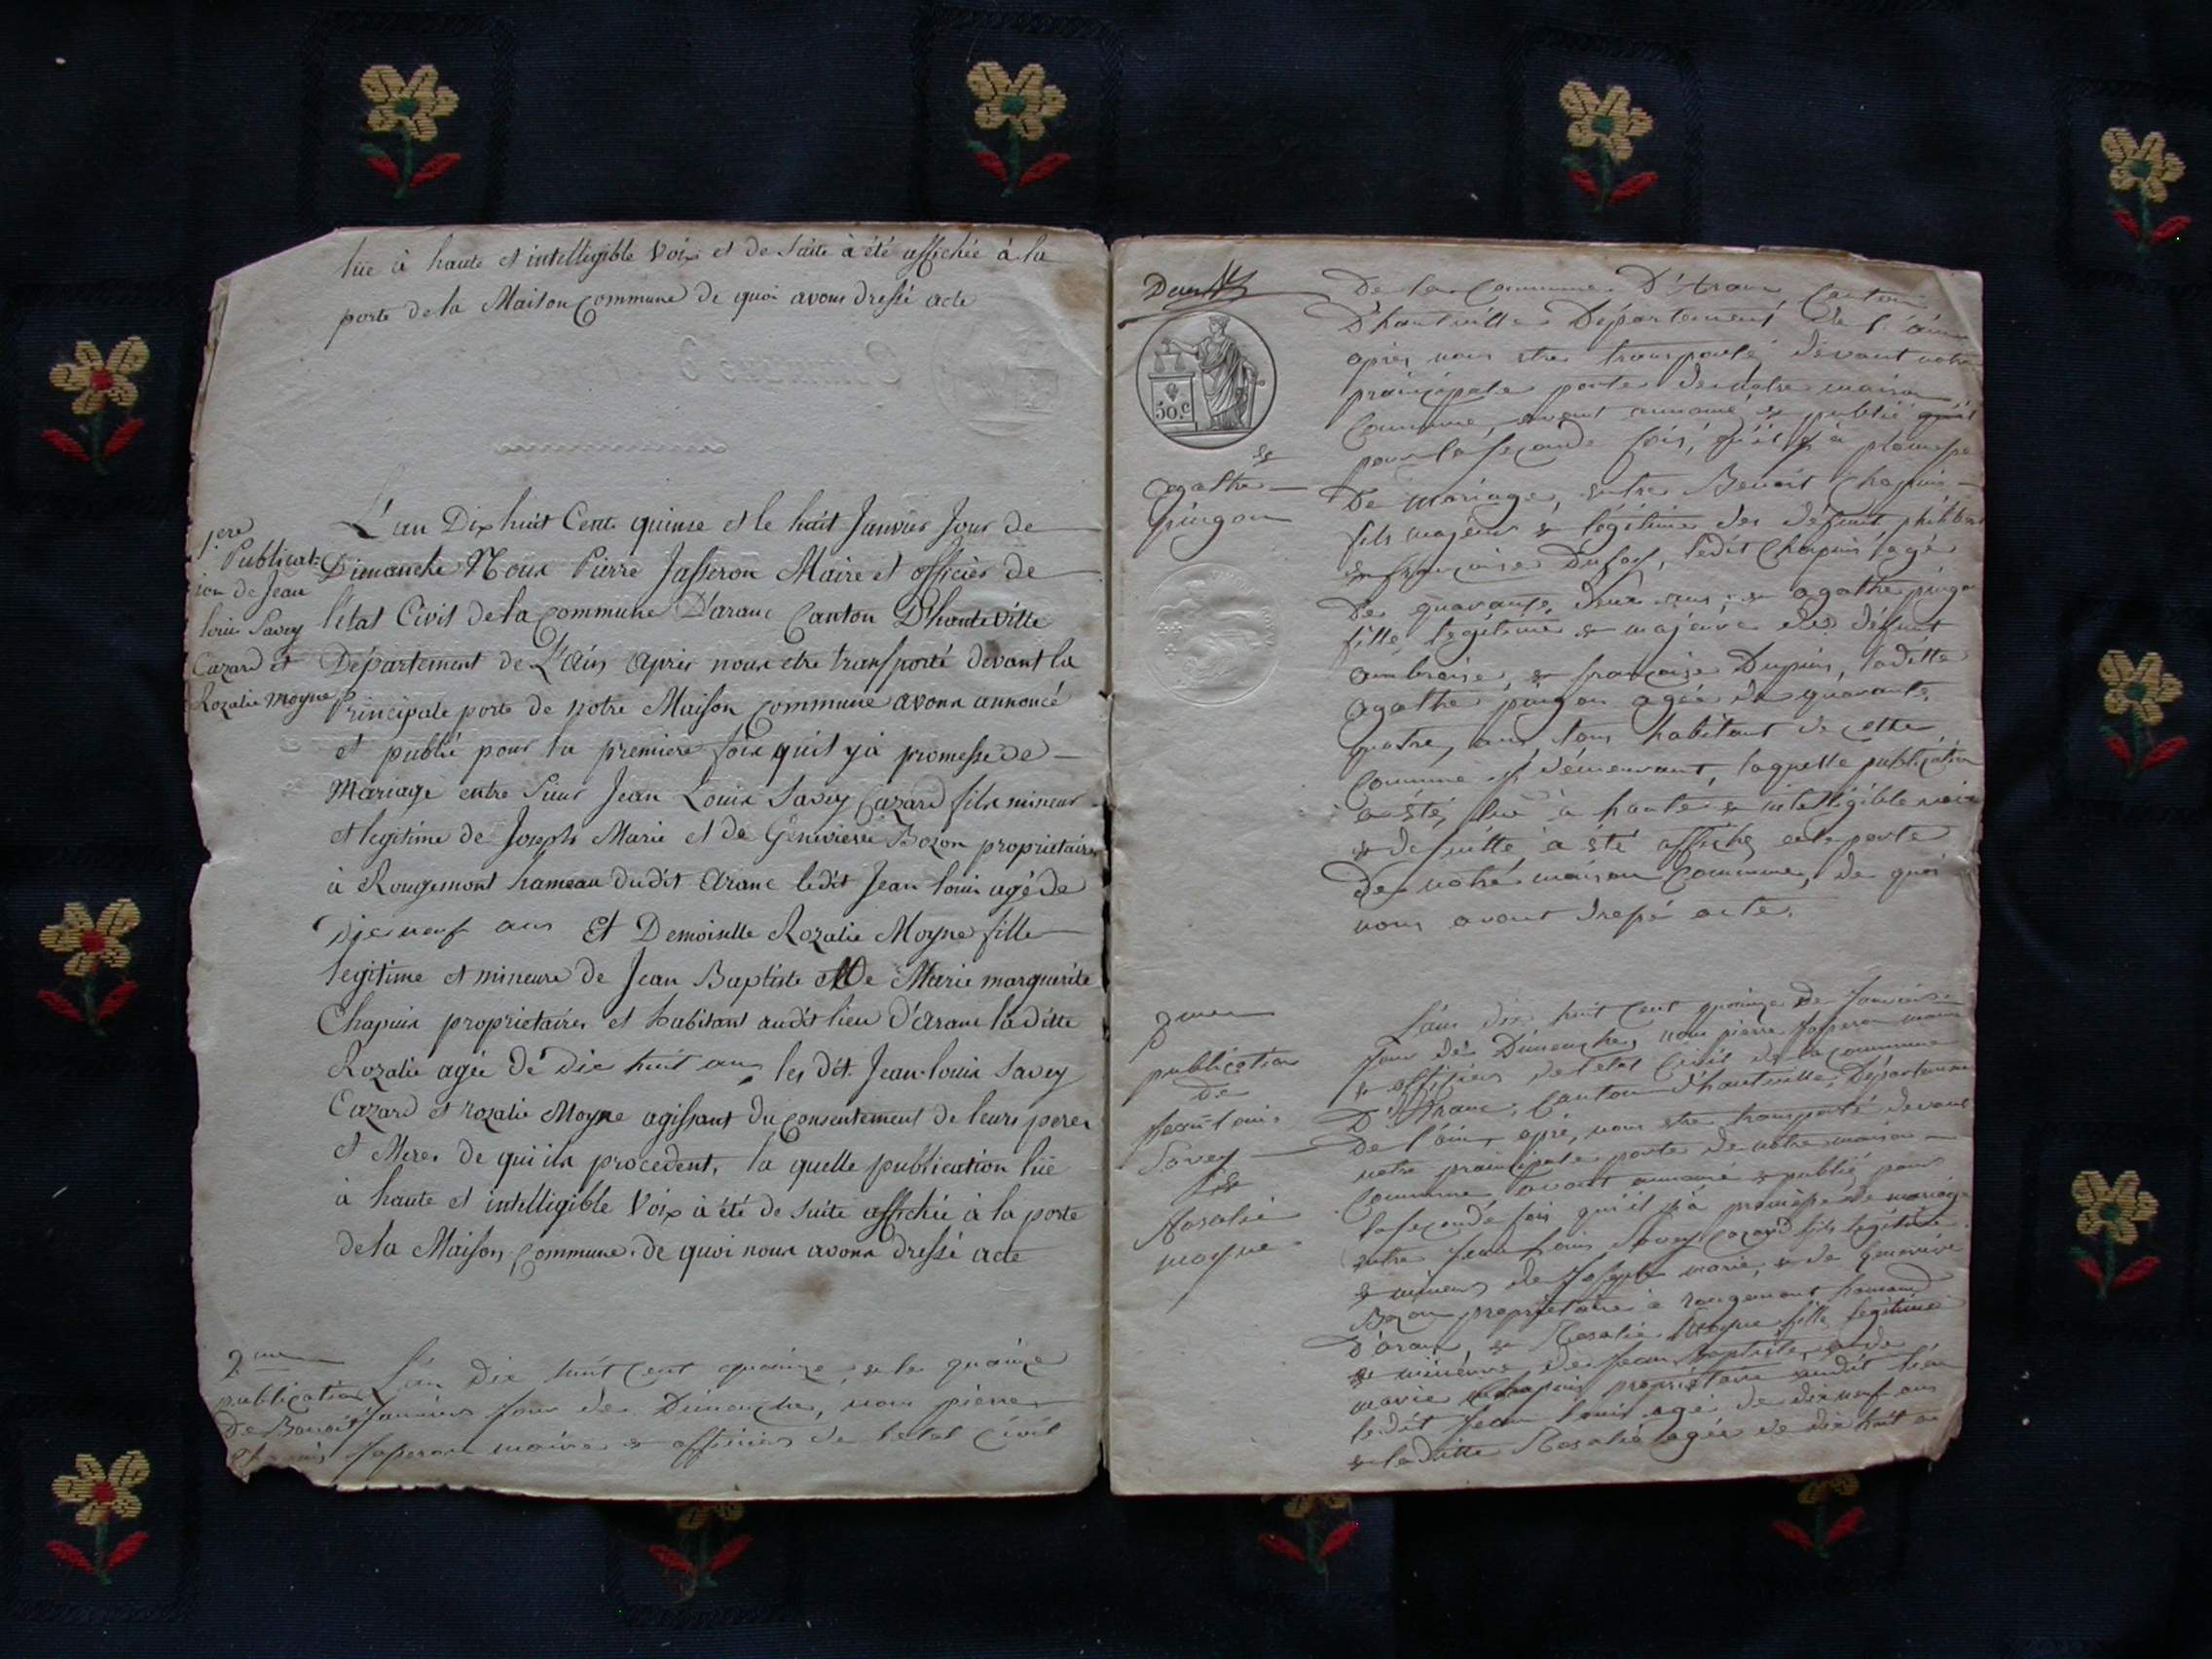 lüe à haute et intelligible Voix et de Suite à été affichée à la
porte de la Maison Commune de quoi avons dressé acte
1ere
Publicat=
ion de Jean
louis Savey
Cazard et
Rozalie Moyne
L'an Dix huit Cent quinse et le huit Janvier Jour de
Dimanche Nous Pierre Jasseron Maire et officier de
l'état Civil de la Commune D'aranc Canton D'hauteville
Département de L'Ain après nous etre transporté devant la
Principale porte de notre Maison Commune avons annoncé
et publié pour la premiere fois quil yà promesse de
Mariage entre Sieur Jean Louis Savey Cazard fils mineur
et legitime de Joseph Marie et de Genevieve Bozon proprietaires
à Rougemont hameau dudit Aranc ledit Jean louis agé de
Dix neuf ans Et Demoiselle Rozalie Moyne fille
legitime et mineure de Jean Baptiste et De Marie marguerite
Chapuis proprietaires et habitant audit lieu d'Aranc laditte
Rozalie agée de Dix huit ans les dit Jean-louis Savey
Cazard et rozalie Moyne agissant du consentement de leurs peres
et Meres de qui ils procedent, la quelle publication lüe
à haute et intelligible Voix à été de suite affichée à la porte
de la Maison Commune de quoi nous avons dressé acte
2me
publication
de Benoit
L'an dix huit Cent quainze, & le quainze
Janvier Jour de Dimanche, nous pierre
Jasseron maire & officier de l'etat Civil
50.c
&
agathe
pingon
De la Commune D'Aranc Canton
D'hauteville Département de l'ain
après nous etre transporté devant notre
prainsipale porte de notre maison
Commune, avont annoncé & publié
pour la seconde fois, quil y à promesse
De mariage, entre Benoit Chapuis
fils majeur & légitime des défunt philibert
& françoise Dufay, ledit Chapuis agé
De quarante deux ans, & agathe pingon
fille légitime & majeure des défunt
ambroise, & françoise Dupuis, laditte
agathe pingon agée de quarante
quatre, ans tous habitant de cette
Commune y démeurant, laquelle publication
a été, lüe à haute & intelligible voix
& de suitte à été affiché à la porte
de notre maison Commune, de quoi
nous avont dressé acte.
2me
publication
de
Jean-louis
Savey
&
Rosalie
moyne
L'an dix huit Cent quainze De Janvier
Jour de Dimenche, nous pierre Jasseron maire
& officier de l'etat Civil de la commune
D'Aranc, Canton d'hauteville, Département
De l'ain, apré, nous etre transporté devant
notre prainsipale porte de notre maison
Commune avont annoncé & publié, pour
la seconde fois quil y à promesse de mariage
entre Jean louis Savey Cazard fils légitime
& mineur de Joseph marie, & de Genevieve
Bozon proprietaire à rougemont hameau
D'aranc, & Rosalie Moyne fille légitime
& mineure, de Jean Baptiste, & de
marie Chapuis proprietaire audit lieu
ledit Jean louis agé de dix neuf ans
& laditte Rosalie agée de dix huit an